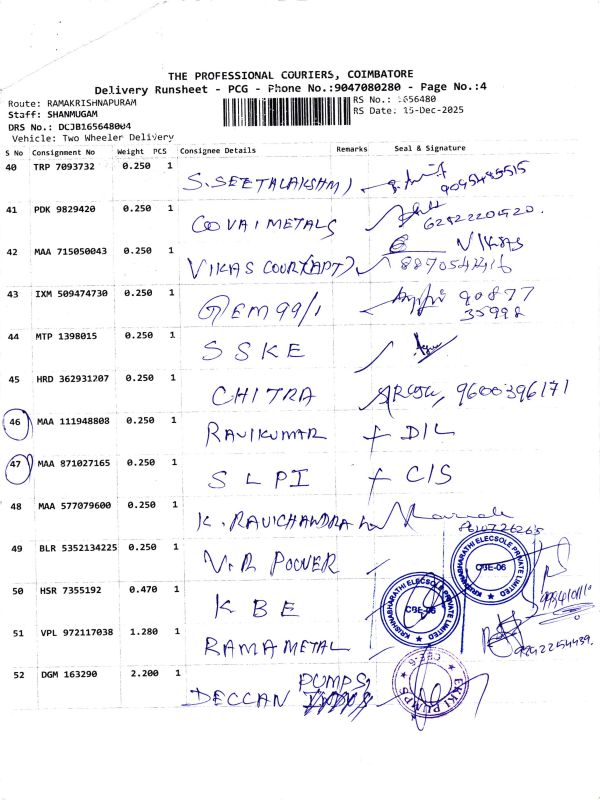 THE PROFESSIONAL COURIERS, COIMBATORE
Delivery Runsheet - PCG - Phone No.:9047080280 - Page No.:4
Route: RAMAKRISHNAPURAM RS No.: 1656480
Staff: SHANMUGAM RS Date: 15-Dec-2025
DRS No.: DCJB165648004
Vehicle: Two Wheeler Delivery
S No Consignment No Weight PCS Consignee Details Remarks Seal & Signature
40 TRP 7093732 0.250 1 S. SEETALAKSHMI
41 PDK 9829420 0.250 1 COVAI METALS
42 MAA 715050043 0.250 1 VIKAS COURT(APT) VIKAS
43 IXM 509474730 0.250 1 GEM 99/1 90877
35998
44 MTP 1398015 0.250 1 SSKE
45 HRD 362931207 0.250 1 CHITRA 9600396171
46 MAA 111948808 0.250 1 RAVIKUMAR + DIL
47 MAA 871027165 0.250 1 SLPI + C/S
48 MAA 577079600 0.250 1 K. RAVICHANDRAN
8610726265
49 BLR 5352134225 0.250 1 V.R POWER
50 HSR 7355192 0.470 1 KBE
KRISHNABHARATHI ELECSOLE PRIVATE LIMITED
CBE-06
KRISHNABHARATHI ELECSOLE PRIVATE LIMITED
CBE-06
51 VPL 972117038 1.280 1 RAMA METAL 9842254439
52 DGM 163290 2.200 1 DECCAN PUMPS
EKKI PUMPS CBE-6